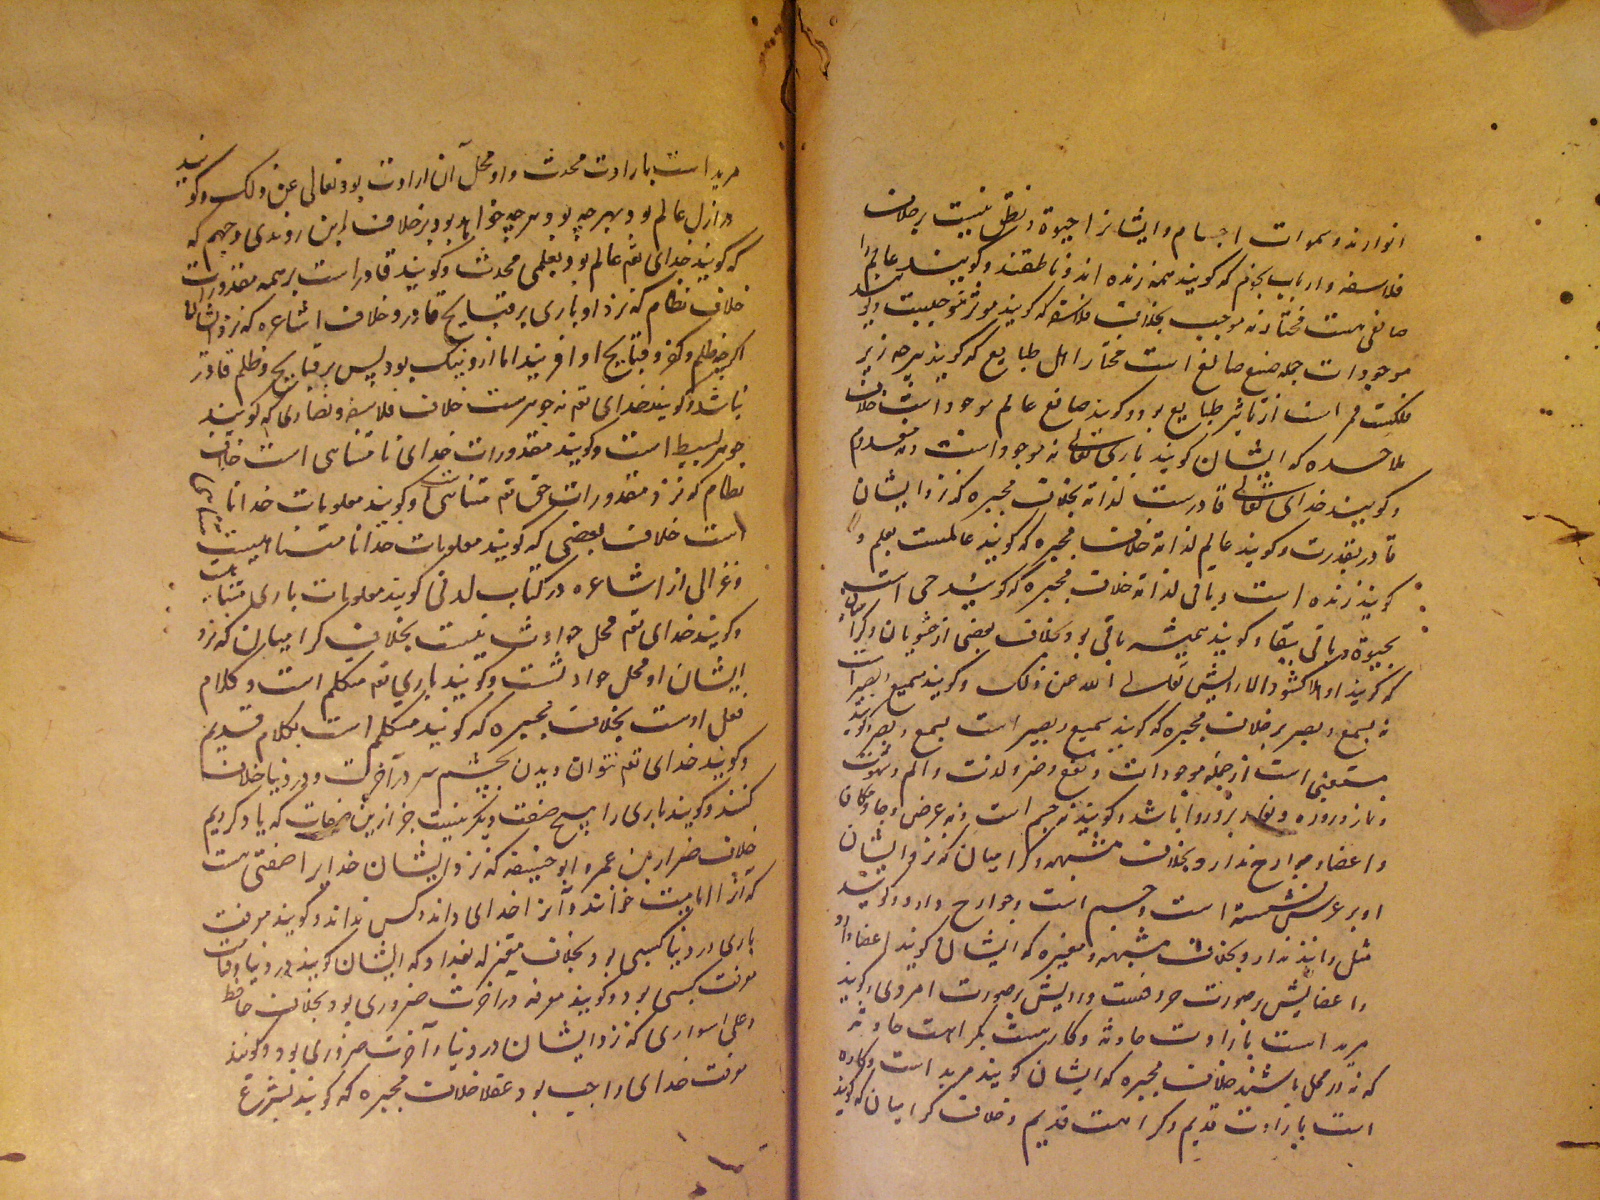 انوارند و سموات اجسام و ایشانرا حیوة و نطق نیست برخلاف
فلاسفه و ارباب نجوم که کویند همه زنده اند و ناطقند و کویند عالم را
صانعی هست مختار نه موجب بخلاف فلاسفه که کویند موثر موجبست و کویند
موجودات جمله صنع صانع است مختار اهل طبایع که کویند هرچه زیر
فلکست قمر است از تاثیر طبایع بود و کویند صانع عالم موجود است خلاف
ملاحده که ایشان کویند باری تعالی نه موجود است و نه معدوم
و کویند خدای تعالی قادرست لذاته بخلاف مجبره که نزد ایشان
قادر بقدرت و کویند عالم لذاته خلاف مجبره که کویند عالمست بعلم و
کویند زنده است و باقی لذاته خلاف مجبره که کویند حی است
بحیوة و باقی ببقا و کویند همیشه باقی بود بخلاف بعضی از حشویان و کرامیان
که کویند او هلاک شود الا رویش تعالی الله عن ذلک و کویند سمیع بصیر است
نه بسمع و بصر برخلاف مجبره که کویند سمیع و بصیر است بسمع و بصر و کویند
مستغنی است از جمله موجودات و نفع و ضر و لذت و الم و شهوت
و نماز و روزه برو روا نباشد و کویند نه جسم است و نه عرض و جا و مکان
و اعضا و جوارح ندارد بخلاف مشبهه و کرامیان که نزد ایشان
او بر عرش نشسته است و جسم است و جوارح دارد و کویند
مثل و مانند ندارد بخلاف مشبهه و مغیره که ایشان کویند اعضا دارد
و اعضایش بر صورت حروفست و رویش بر صورت امردی و کویند
مرید است بارادت حادثه و کارهست بکراهت حادثه
که نه در محل باشند خلاف مجبره که ایشان کویند مرید است و کاره
است بارادت قدیم و کراهت قدیم و خلاف کرامیان که کویند
مرید است بارادت محدث و او محل آن ارادت بود تعالی عن ذلک و کویند
در ازل عالم بود بهرچه بود و هرچه خواهد بود برخلاف ابن راوندی و جهم که
که کویند خدای تعم عالم بود بعلمی محدث و کویند قادر است بر همه مقدورات
خلاف نظام که نزد او باری بر قبایح قادر و خلاف اشاعره که نزد ایشان
اکرچه ظلم و کفر و قبایح او افریند اما ازو نیک بود پس بر قبایح و ظلم قادر
نباشد و کویند خدای تعم نه جوهرست خلاف فلاسفه و نصاری که کویند
جوهر بسیط است و کویند مقدورات خدای نامتناهی است خلاف
نظام که نزد مقدورات حق تعم متناهی و کویند معلومات خدا نامتناهی
است خلاف بعضی که کویند معلومات خدا نامتناهیست
و غزالی از اشاعره در کتاب لدنی کویند معلومات باری متناهیست
و کویند خدای تعم محل حوادث نیست بخلاف کرامیان که نزد
ایشان او محل حوادثست و کویند باری تعم متکلم است و کلام
فعل اوست بخلاف مجبره که کویند متکلم است بکلام قدیم
و کویند خدای تعم نتوان دیدن بچشم سر در آخرت و در دنیا خلاف
کنند و کویند باری را هیچ صفت دیکر نیست جز ازین صفات که یاد کردیم
خلاف ضرار بن عمرو و ابو حنیفه که نزد ایشان خدایرا صفتی هست
که آنرا ماهیت خوانند و آنرا خدای داند و کس نداند و کویند معرفت
باری در دنیا کسبی بود بخلاف معتزله بغداد که ایشان کویند در دنیا و آخرت
معرفت کسبی بود و کویند معرفه در آخرت ضروری بود بخلاف جاحظ
و علی اسواری که نزد ایشان در دنیا و آخرت ضروری بود و کویند
معرفت خدای واجب بود عقلا خلاف مجبره که کویند بشرع